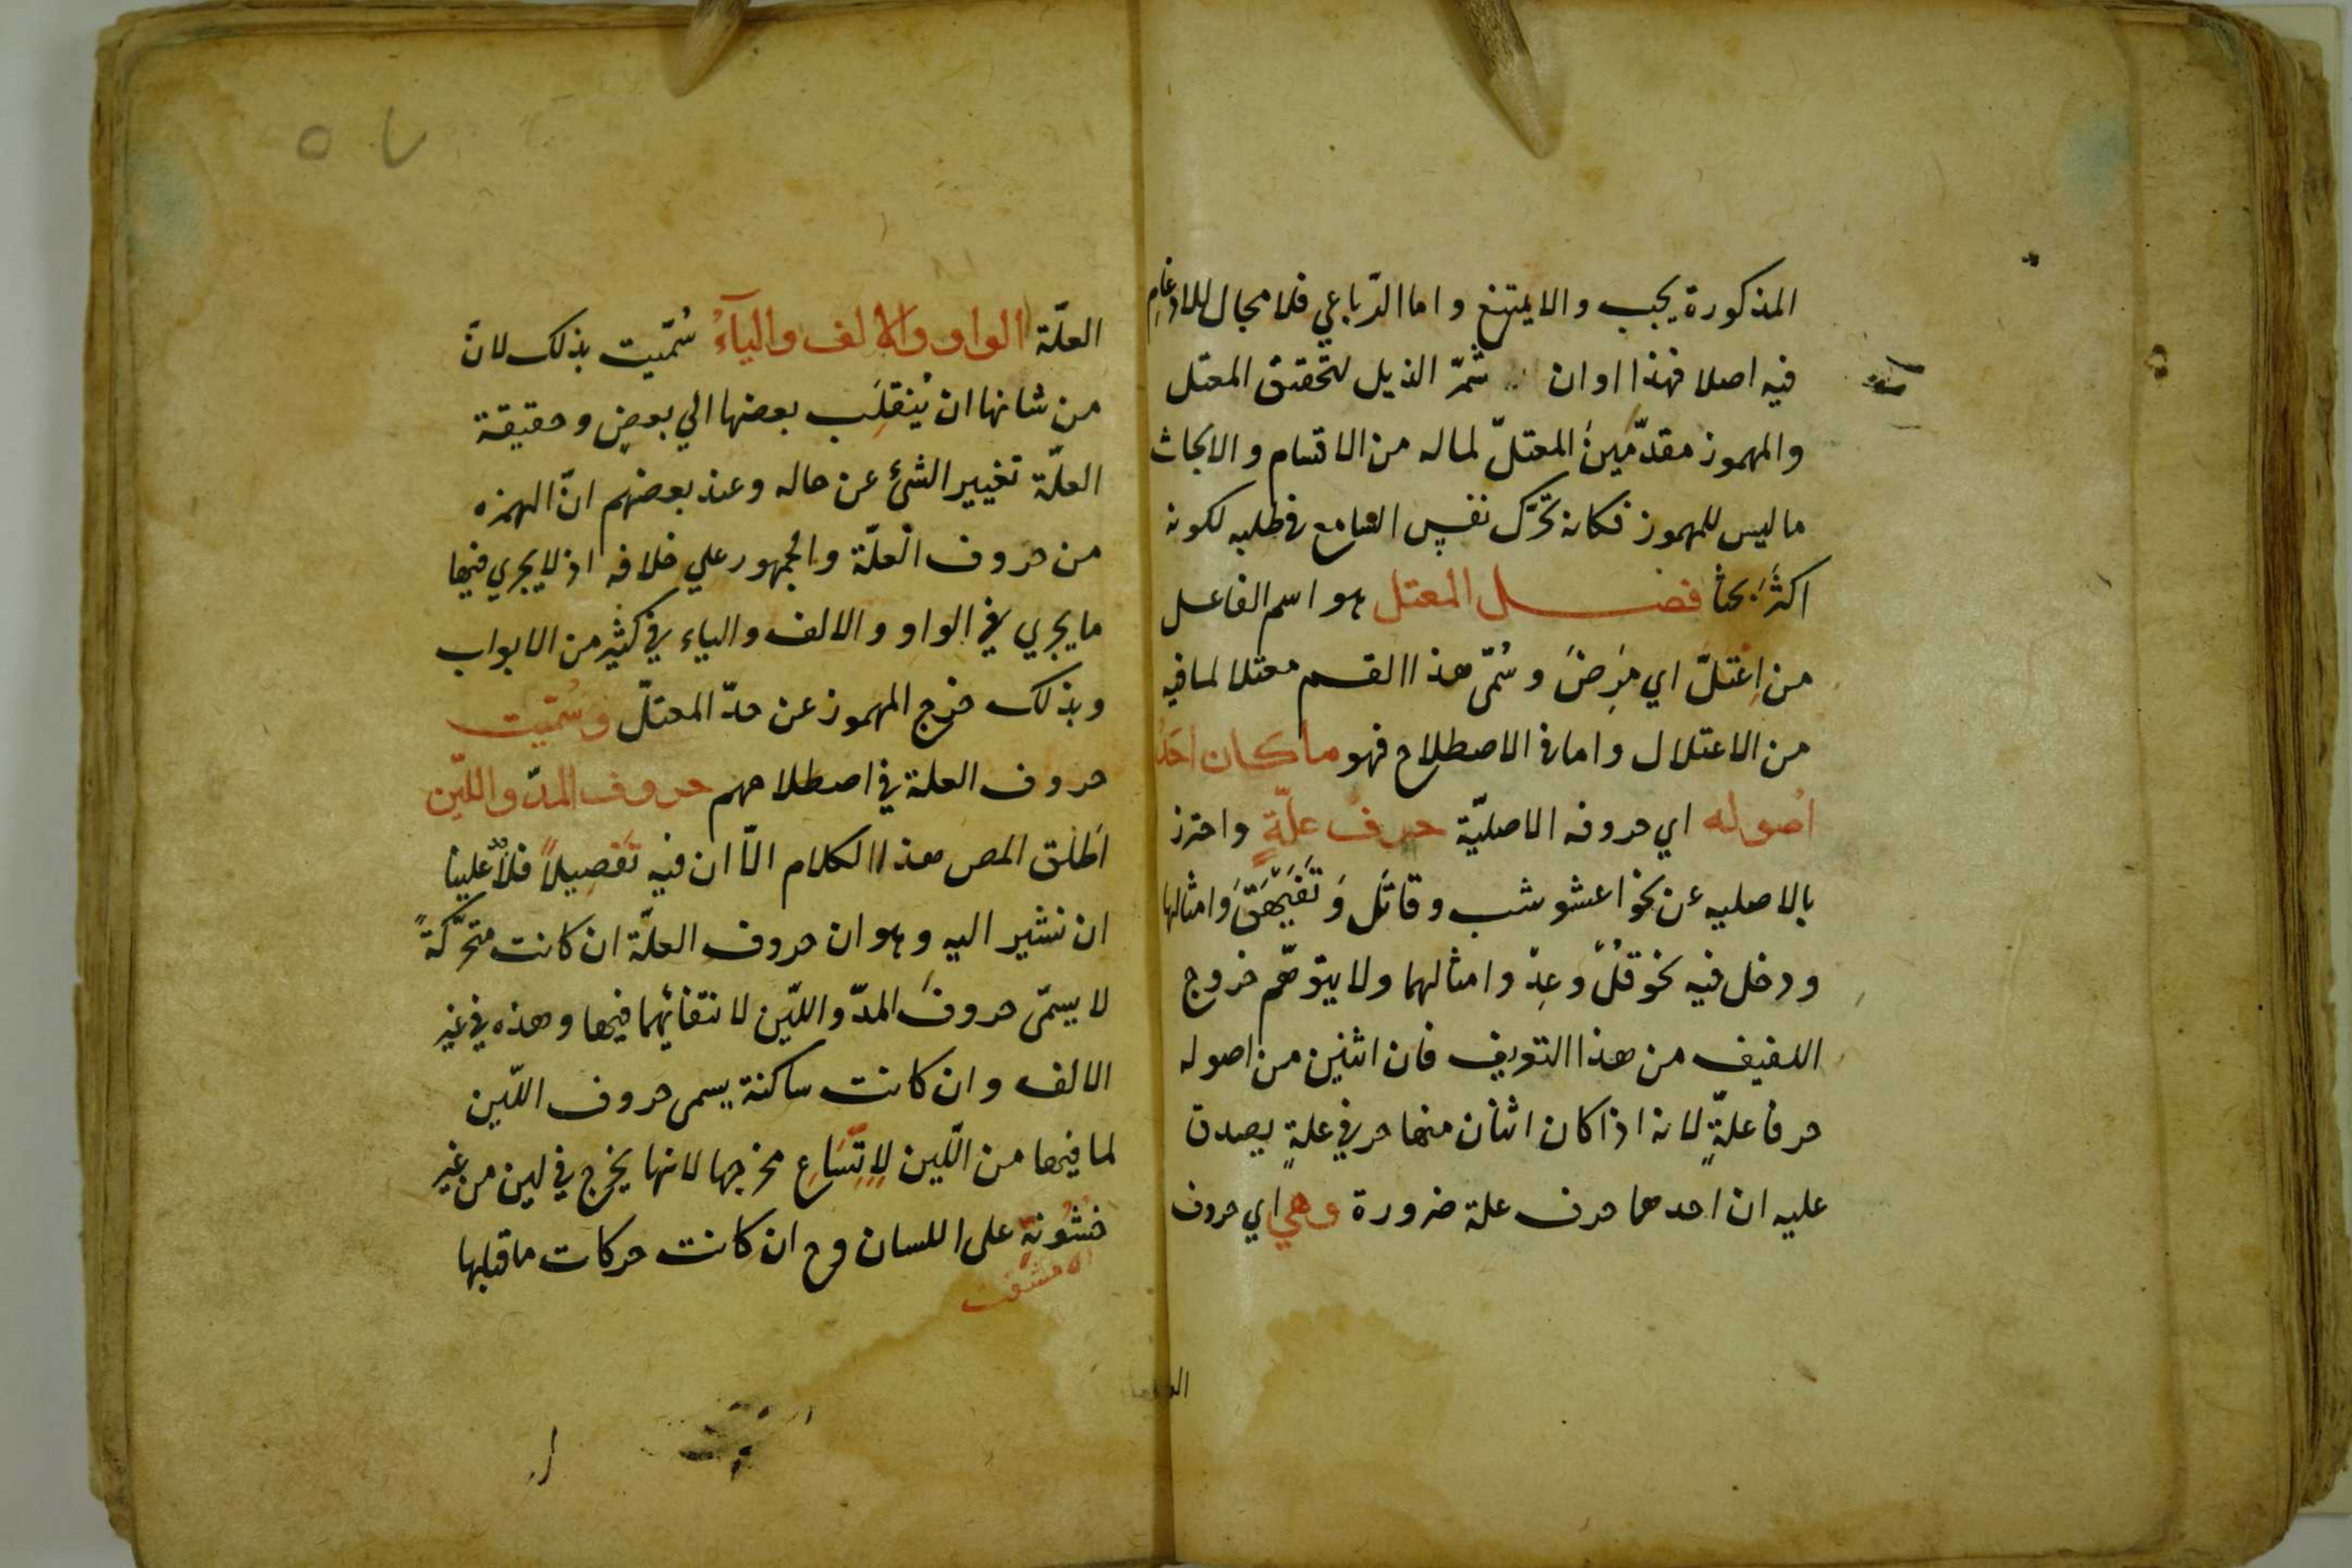 المذكورة يجب والا يمتنع واما الرّباعي فلا مجال للادغامِ
فيه اصلا فهذا اوان تشمّر الذيل لتحقيق المعتل
والمهموز مقدّمين المعتلّ لما له من الاقسام والابحاث
ما ليس للمهموز فكانه تحرّك نفس السامع في طلبه لكونه
اكثَرَ بحثا فصل المعتل هو اسم الفاعل
من اِعْتلّ اي مَرِضَ وسُمّى هذا القسم معتلا لما فيه
من الاعتلال واما في الاصطلاح فهو ما كان احَدُ
اصُوله اي حروفه الاصليّة حرف علّةٍ واحترز
بالاصليه عن نحو اعشوشب وقاتَل وَتَفَيْهَقَ وامثالها
ودخل فيه نحو قُلْ وعِدْ وامثالهما ولا يتوهّم خروج
اللفيف من هذا التعريف فان اثنين من اصوله
حرفا علّةٍ لانه اذا كان اثنان منها حرفي علةٍ يصدق
عليه ان احدهما حرف علة ضرورة وهي اي حروف
العلّة الواو والالف والياءُ سُمّيت بذلك لانّ
من شانها ان يَنقلِب بعضها الي بعضٍ وحقيقة
العلّة تغيير الشئ عن حاله وعند بعضهم انّ الهمزه
من حروف العلّة والجمهور علي خلافه اذ لا يجري فيها
ما يجري في الواو والالف والياء في كثير من الابواب
وبذلك خرج المهموز عن حدّ المعتلّ وسُمّيت
حروف العلة في اصطلاحهم حروف المدّ واللّين
اَطلق المص هذا الكلام الّا ان فيه تَفصِيلاً فلا علينا
ان نشير اليه وهو ان حروف العلّة ان كانت متحرّكةً
لا يسمّى حروفَ المدّ واللّين لانتفائهما فيها وهذه في غير
الالف وان كانت ساكنة يسمى حروف اللّين
لما فيها من اللّين لِاِتِّسَاعِ مخرجها لانها يخرج في لين من غير
خشُونةٍ على اللسان وح ان كانت حركات ما قبلها